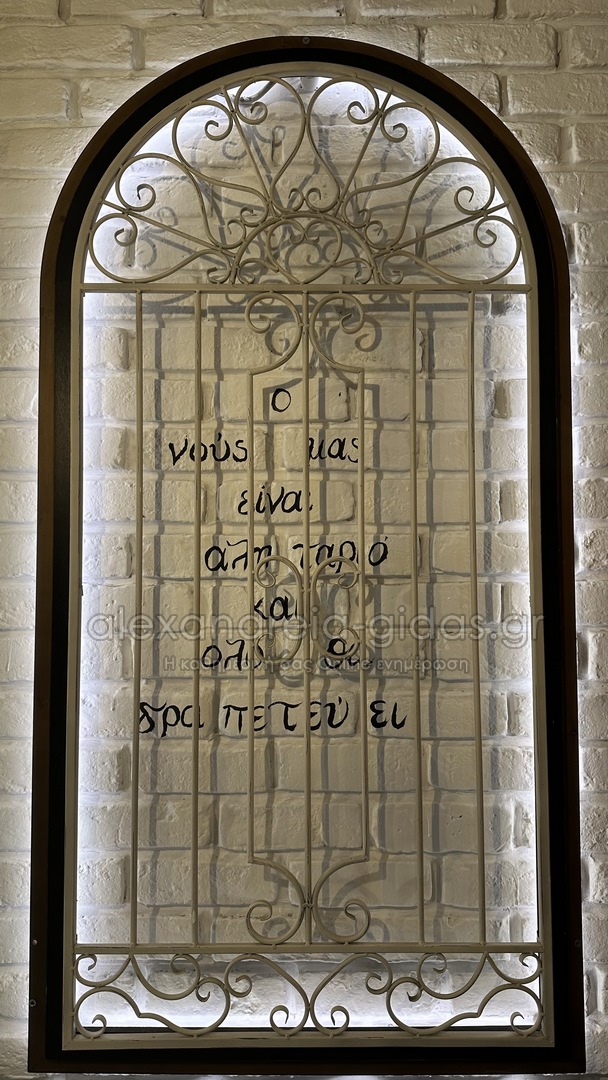 ο
νούς μας
είναι
αλητταριό
και
όλο θα
δραπετεύει
alexandreia-gidas.gr
Η καθημερινή σας Online ενημέρωση